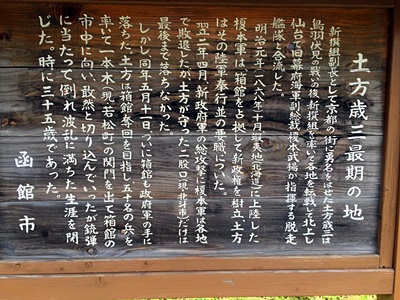 土方歳三最期の地
新撰組副長として京都の街に勇名をはせた土方歳三は、
鳥羽伏見の戦いの後、新撰組を率いて各地を転戦して北上し
仙台で旧幕府海軍副総裁榎本武揚が指揮する脱走
艦隊と合流した。
明治元年（一八六八年）十月蝦夷地（北海道）に上陸した
榎本軍は、箱館を占拠して新政権を樹立、土方
はその陸軍奉行並の要職についた。
翌二年四月、新政府軍の総攻撃に榎本軍は各地
で敗退したが、土方が守った二股口（現・大野町）だけは
最後まで落ちなかった。
しかし、同年五月十一日、ついに箱館も政府軍の手に
落ちた。土方は箱館奪回を目指し、五十名の兵を
率いて一本木（現・若松町）の関門を出て箱館の
市中に向い、敢然と切り込んでいったが、銃弾
に当たって倒れ、波乱に満ちた生涯を閉
じた。時に三十五歳であった。
函館市